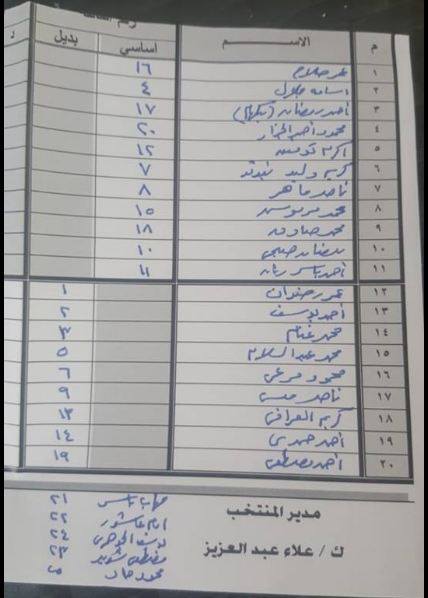 م الاســـم اساسي بديل
١ عمر صلاح ١٦
٢ اسامه جلال ٤
٣ احمد رمضان (بيكهام) ١٧
٤ محمود احمد الجزار ٢٠
٥ اكرم توفيق ١٢
٦ كريم وليد نيدفيد ٧
٧ ناصر ماهر ٨
٨ محمد ١٥
٩ محمد صادق ١٨
١٠ رمضان صبحي ١٠
١١ احمد ياسر ريان ١١
١٢ عمر رضوان ١
١٣ احمد يوسف ٢
١٤ محمد غنام ٣
١٥ محمد عبد السلام ٥
١٦ محمود مرعي ٦
١٧ ناصر منسي ٩
١٨ كريم العراقي ١٣
١٩ احمد حمدي ١٤
٢٠ احمد مصطفى ١٩
مدير المنتخب
ك / علاء عبد العزيز
مهاب ياسر ٢١
امام عاشور ٢٢
يوسف الجوهري ٢٤
مصطفى شوبير ٢٣
محمود ٢٥